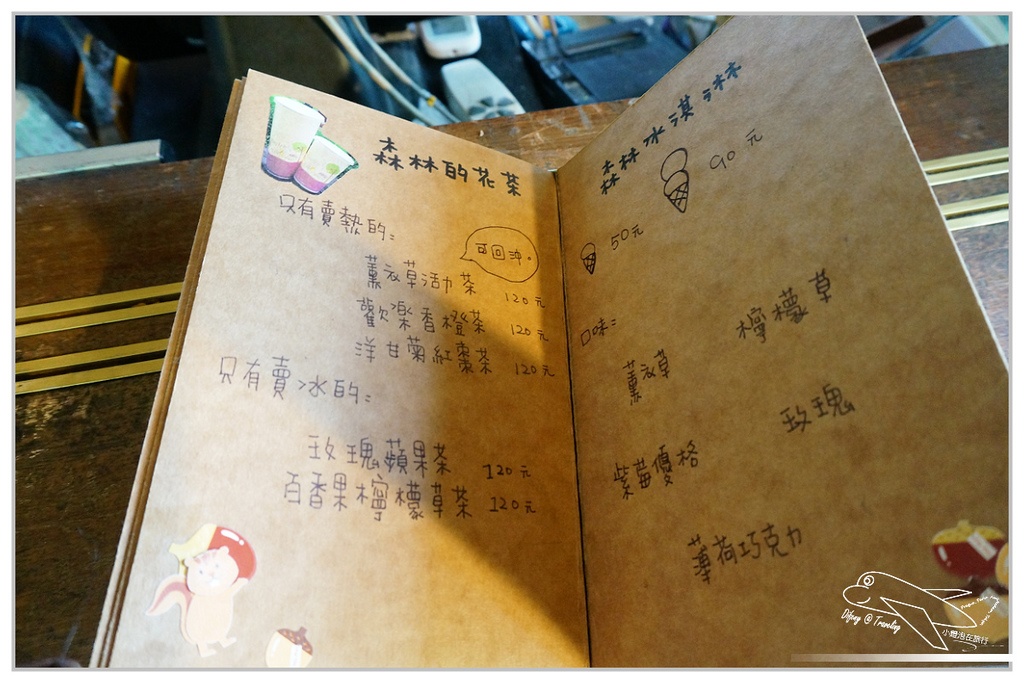 森林的花茶
只有賣熱的：
可回沖。
薰衣草活力茶 120元
歡樂香橙茶 120元
洋甘菊紅棗茶 120元
只有賣冰的：
玫瑰蘋果茶 120元
百香果檸檬草茶 120元
森林冰淇淋
90元
50元
口味：
檸檬草
薰衣草
玫瑰
紫莓優格
薄荷巧克力
Difeny @ Traveling
小燈泡在旅行